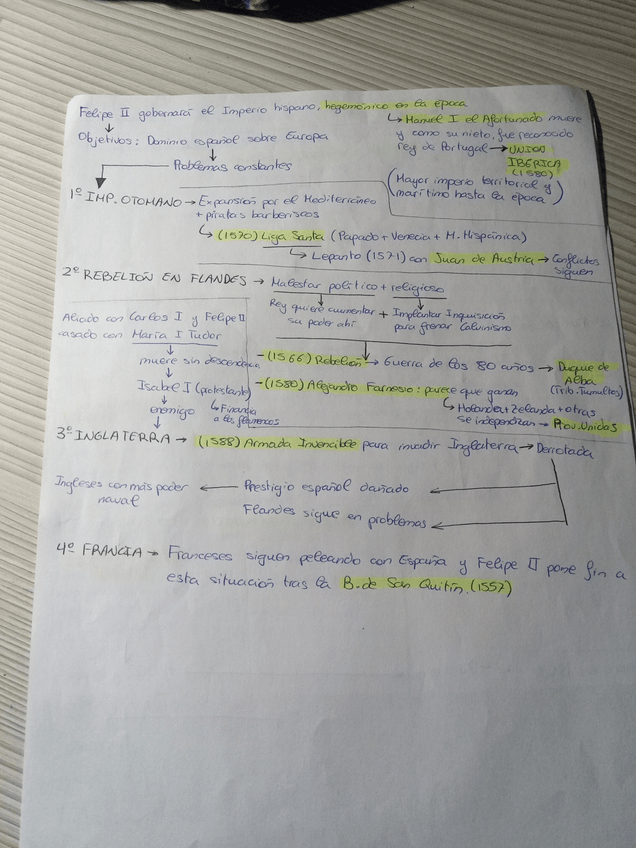 Felipe II gobernará el Imperio hispano, hegemónico en la época
↳ Manuel I el Afortunado muere
y como su nieto, fue reconocido
rey de Portugal → UNION
IBÉRICA
(1580)
(Mayor imperio territorial y
marítimo hasta la época)
Objetivos: Dominio español sobre Europa
Problemas constantes
1º IMP. OTOMANO → Expansión por el Mediterráneo
+ piratas barberiscos
↳ (1570) Liga Santa (Papado + Venecia + M. Hispánica)
↳ Lepanto (1571) con Juan de Austria → Conflictos
siguen
2º REBELIÓN EN FLANDES → Malestar político + religioso
Rey quiere aumentar + Implantar Inquisición
su poder ahí para frenar Calvinismo
- (1566) Rebelión → Guerra de los 80 años → Duque de
Alba
(Trib. Tumultos)
- (1580) Alejandro Farnesio: parece que ganan
↳ Holanda + Zelanda + otras
se independizan → Prov. Unidas
Aliado con Carlos I y Felipe II
casado con María I Tudor
muere sin descendencia
Isabel I (protestante)
↳ Financia
a los flamencos
enemigo
3º INGLATERRA → (1588) Armada Invencible para invadir Inglaterra → Derrotada
Ingleses con más poder
naval
← Prestigio español dañado ←
Flandes sigue en problemas ←
4º FRANCIA → Franceses siguen peleando con España y Felipe II pone fin a
esta situación tras la B. de San Quitín. (1557)